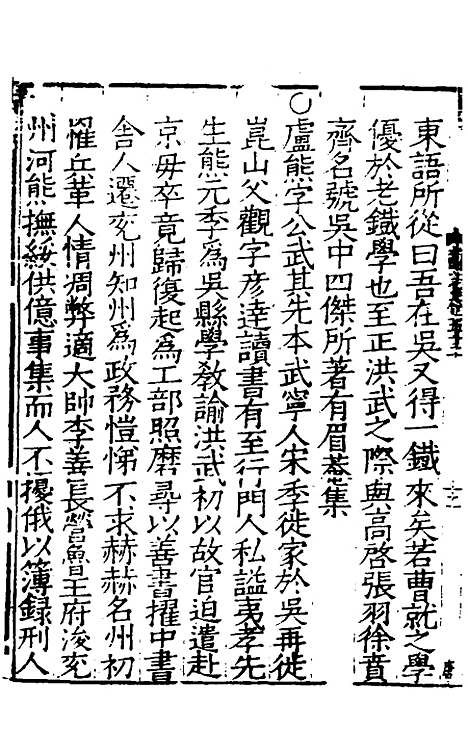 東語所從曰吾在吳又得一鐵來矣若曹就之學
優於老鐵學也至正洪武之際與高啓張羽徐賁
齊名號吳中四傑所著有眉菴集
○盧熊字公武其先本武寧人宋季徙家於吳再徙
崑山父觀字彥達讀書有至行門人私謚夷孝先
生熊元季爲吳縣學敎諭洪武初以故官迫遣赴
京毋卒竟歸復起爲工部照磨尋以善書擢中書
舍人遷兖州知州爲政務愷悌不求赫赫名州初
罹兵革人情凋弊適大帥李善長營魯王府浚兖
州河熊撫綏供億事集而人不擾俄以簿録刑人